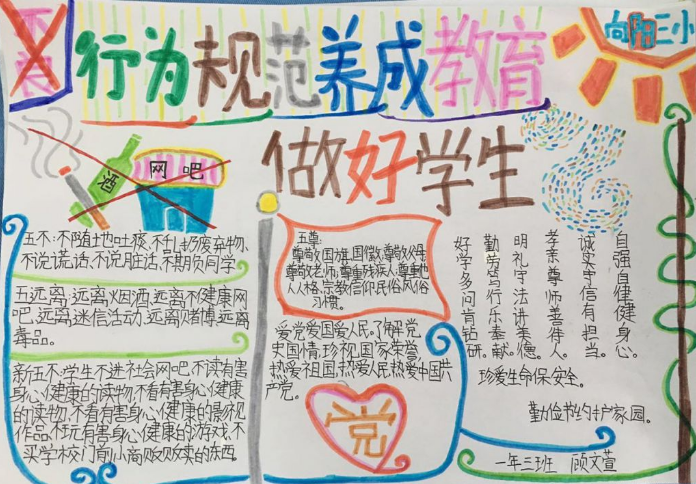 不良
行为规范养成教育
向阳三小
做好学生
酒
网吧
五不:不随地吐痰、不乱扔废弃物、
不说谎话、不说脏话、不欺负同学
五远离,远离烟酒、远离不健康网
吧、远离迷信活动、远离赌博、远离
毒品。
新五不:学生不进社会网吧、不读有害
身心健康的读物、不看有害身心健康
的读物、不看有害身心健康的影视
作品、不玩有害身心健康的游戏、不
买学校门前小商贩贩卖的东西。
五尊:
尊敬国旗、国徽;尊敬父母
尊敬老师;尊重残疾人;尊重他
人人格、宗教信仰、民俗风俗
习惯。
爱党爱国爱人民。了解党
史国情,珍视国家荣誉,
热爱祖国,热爱人民热爱中国共
产党。
党
自强自律健身心。
诚实守信有担当。
孝亲尊师善待人。
明礼守法讲美德。
勤劳笃行乐奉献。
好学多问肯钻研。
珍爱生命保安全。
勤俭节约护家园。
一年三班 顾文萱